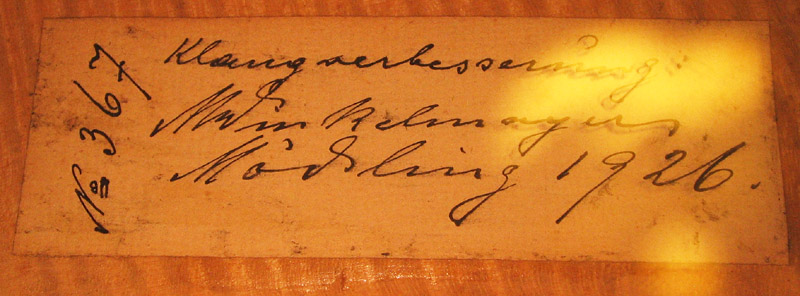 № 367
Klangverbesserung
Mödling 1926.